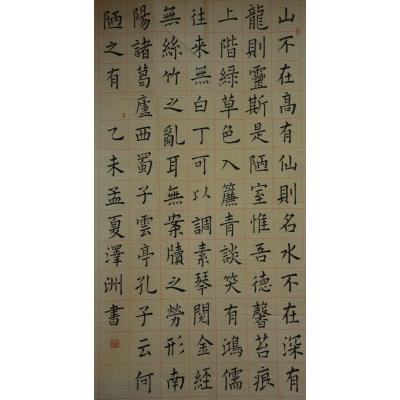 山不在高有仙則名水不在深有
龍則靈斯是陋室惟吾德馨苔痕
上階緑草色入簾青談笑有鴻儒
往來無白丁可以調素琴閱金經
無絲竹之亂耳無案牘之勞形南
陽諸葛廬西蜀子雲亭孔子云何
陋之有 乙未孟夏澤洲書